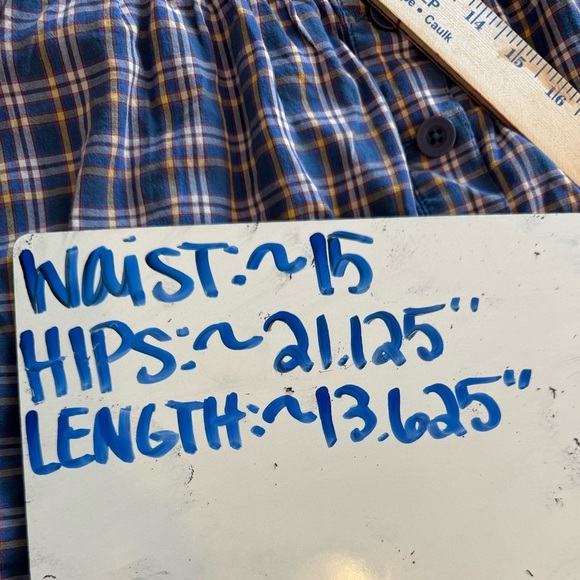 • Caulk
14
15
16
WaiST: ~15
HIPS: ~21.125"
LENGTH: ~13.625"